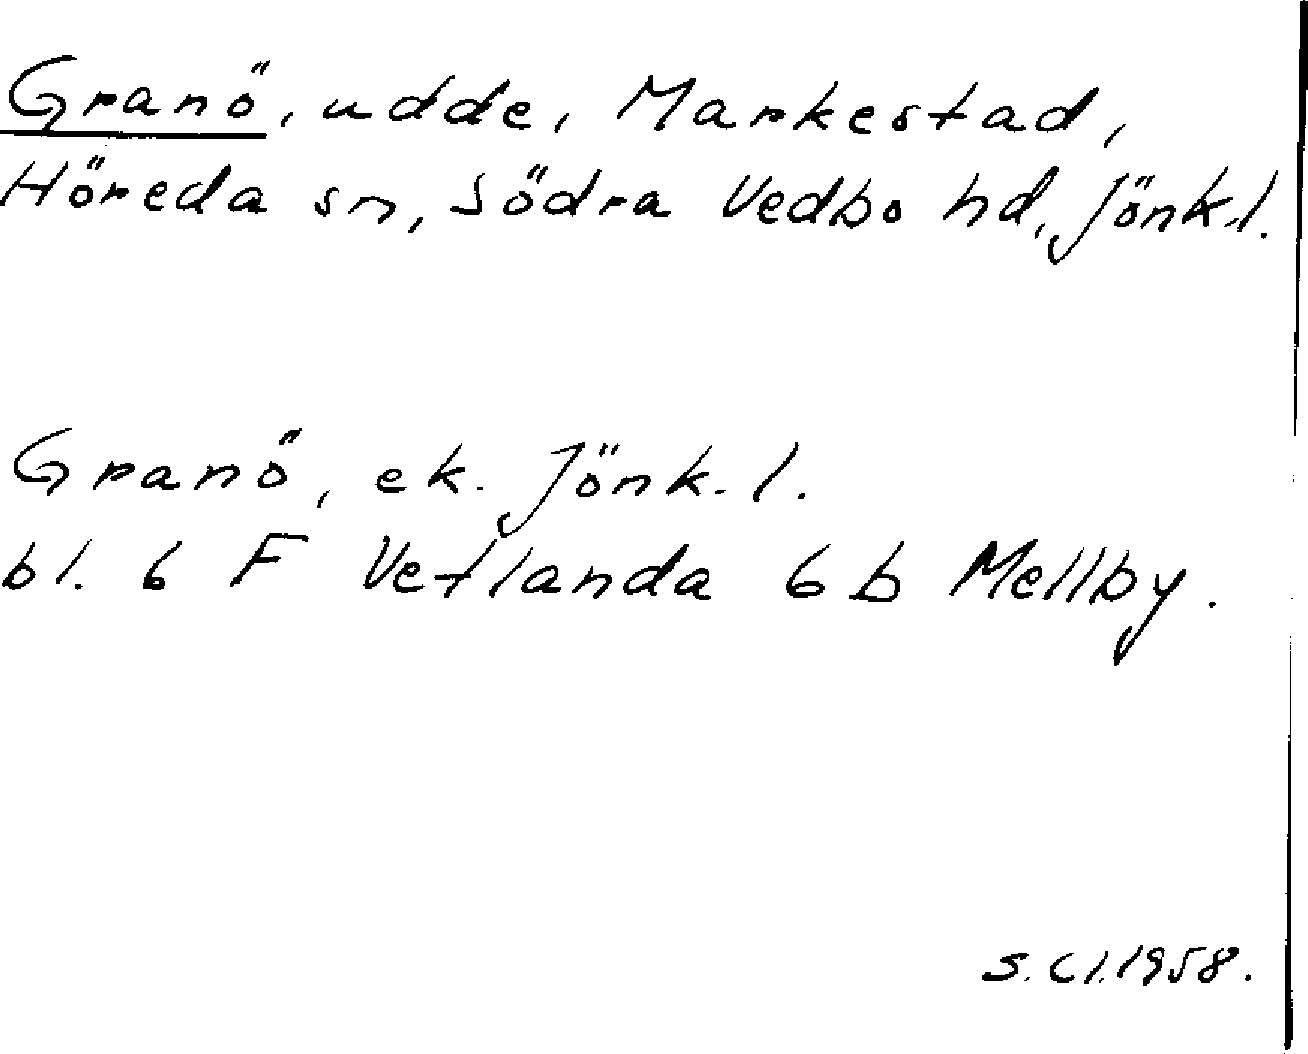 Granö, udde, Markestad,
Höreda sn, Södra Vedbo hd, Jönk.l.
Granö, ek. Jönk. l.
bl. 6 F Vetlanda 6 b Mellby.
S. Cl. 1958.